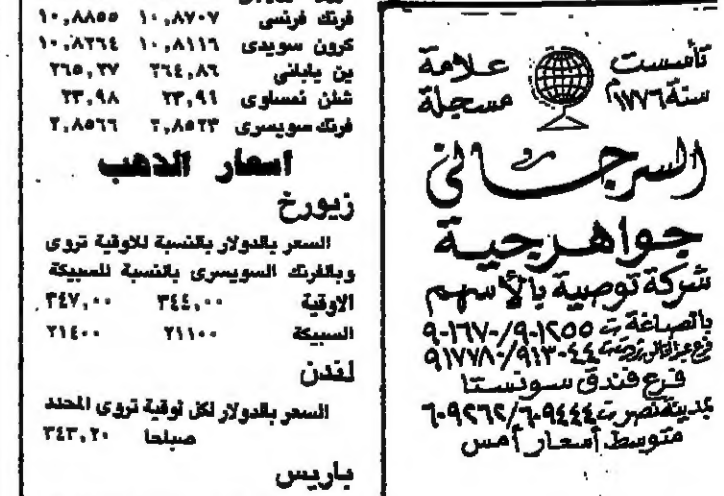 تأسست
سنة ١٧٧٦م
علامة
مسجلة
السرجانى
جواهرجية
شركة توصية بالأسهم
بالصاغة ت ٩٠١٢٥٥/٩٠١٦٧٧
٩١٣٠٤٤/٩١٧٧٨٠
فرع فندق سونستا
بمدينة نصر ت ٦٠٩٤٤٤/٦٠٩٢٦٢
متوسط أسعار أمس
فرنك فرنسى ١٠,٨٧٠٧ ١٠,٨٨٥٥
كرون سويدى ١٠,٨١١٦ ١٠,٨٢٦٤
ين يابانى ٢٦٤,٨٦ ٢٦٥,٣٧
شلن نمساوى ٢٣,٩٤ ٢٣,٩٨
فرنك سويسرى ٢,٨٥٢٣ ٢,٨٥٦٦
اسعار الذهب
زيورخ
السعر بالدولار بالنسبة للاوقية تروى
وبالفرنك السويسرى بالنسبة للسبيكة
الاوقية ٣٤٤,٠٠ ٣٤٧,٠٠
السبيكة ٢١١٠٠ ٢١٤٠٠
لندن
السعر بالدولار لكل اوقية تروى المحدد
صباحا ٣٤٣,٢٠
باريس